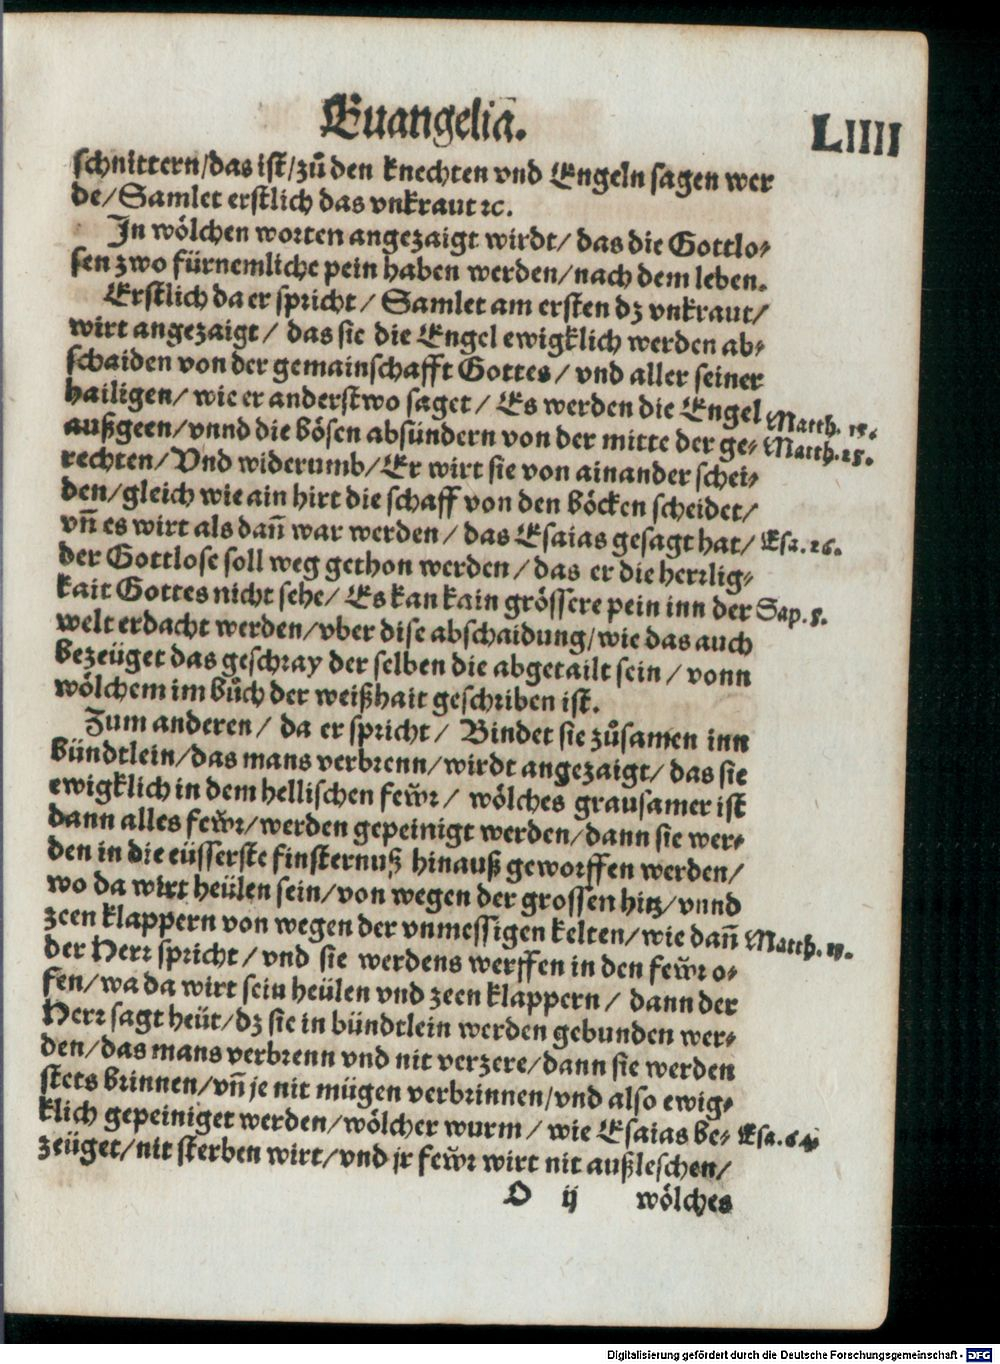 Euangelia.
LIIII
schnittern/das ist/zů den knechten vnd Engeln sagen wer
de/Samlet erstlich das vnkraut ꝛc.
In wölchen worten angezaigt wirdt/ das die Gottlo⸗
sen zwo fürnemliche pein haben werden/nach dem leben.
Erstlich da er spricht/ Samlet am ersten dz vnkraut/
wirt angezaigt/ das sie die Engel ewigklich werden ab⸗
schaiden von der gemainschafft Gottes/ vnd aller seiner
hailigen/ wie er anderstwo saget/ Es werden die Engel
Matth. 13.
außgeen/vnnd die bösen absündern von der mitte der ge⸗
Matth. 25.
rechten/Vnd widerumb/Er wirt sie von ainander schei⸗
den/gleich wie ain hirt die schaff von den böcken scheidet/
vñ es wirt als dañ war werden/ das Esaias gesagt hat/
Esa. 26.
der Gottlose soll weg gethon werden/das er die herrlig⸗
kait Gottes nicht sehe/ Es kan kain grössere pein inn der
Sap. 5.
welt erdacht werden/vber dise abschaidung/wie das auch
bezeüget das geschray der selben die abgetailt sein/ vonn
wölchem im bůch der weißhait geschriben ist.
Zum anderen/ da er spricht/ Bindet sie zůsamen inn
bündtlein/das mans verbrenn/wirdt angezaigt/ das sie
ewigklich in dem hellischen feẅr/ wölches grausamer ist
dann alles feẅr/werden gepeinigt werden/dann sie wer⸗
den in die eüsserste finsternuß hinauß geworffen werden/
wo da wirt heülen sein/von wegen der grossen hitz/vnnd
zeen klappern von wegen der vnmessigen kelten/wie dañ
Matth. 13.
der Herr spricht/vnd sie werdens werffen in den feẅr o⸗
fen/wa da wirt sein heülen vnd zeen klappern/ dann der
Herr sagt heüt/dz sie in bündtlein werden gebunden wer⸗
den/das mans verbrenn vnd nit verzere/dann sie werden
stets brinnen/vñ je nit mügen verbrinnen/vnd also ewig⸗
klich gepeiniget werden/wölcher wurm/ wie Esaias be⸗
Esa. 64
zeüget/nit sterben wirt/vnd jr feẅr wirt nit außleschen/
O ij
wölches
Digitalisierung gefördert durch die Deutsche Forschungsgemeinschaft - DFG